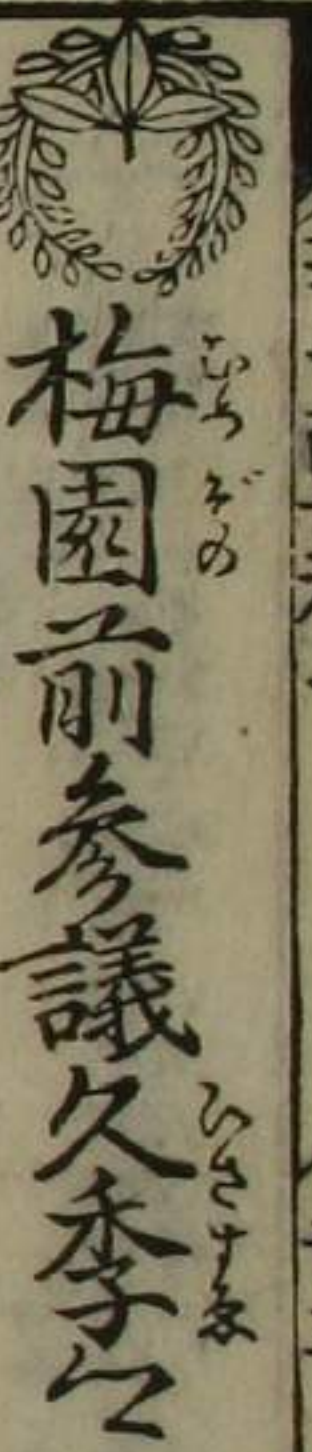 梅園前参議久季公
むめぞの
ひさすゑ